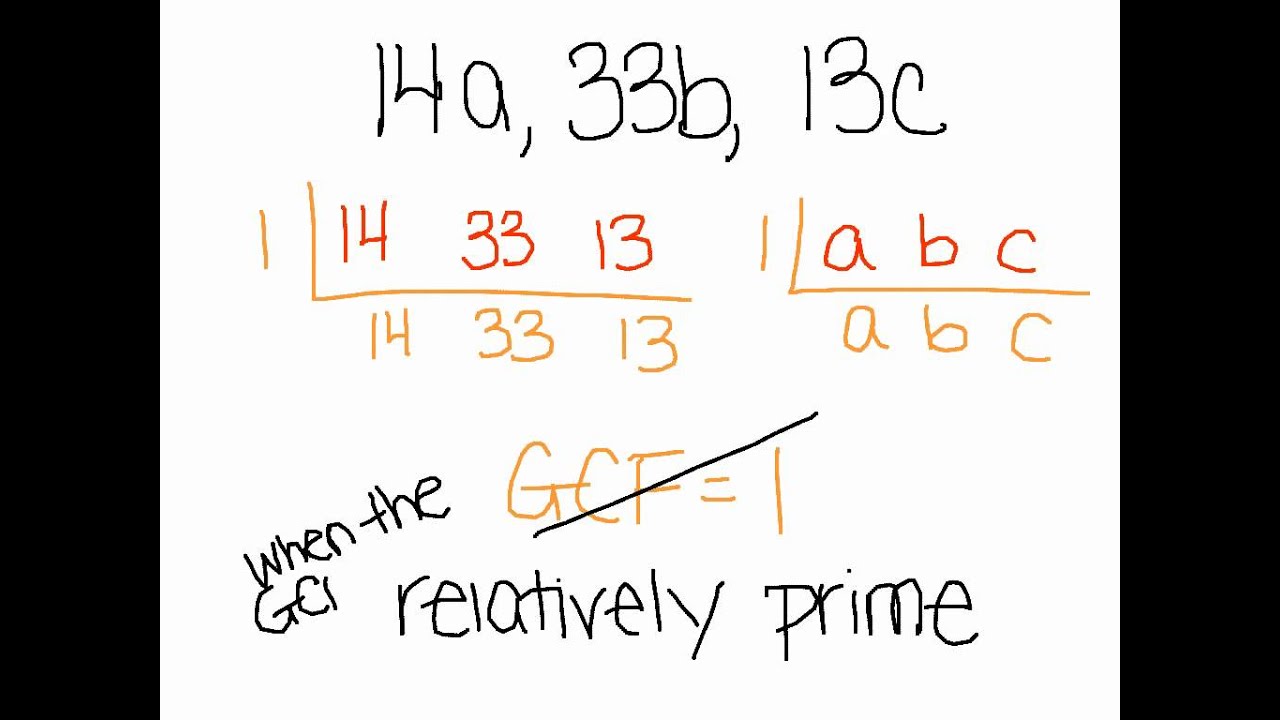 14a, 33b, 13c
1 14 33 13 1 a b c
14 33 13 a b c
GCF = 1
when the
GCI
relatively prime